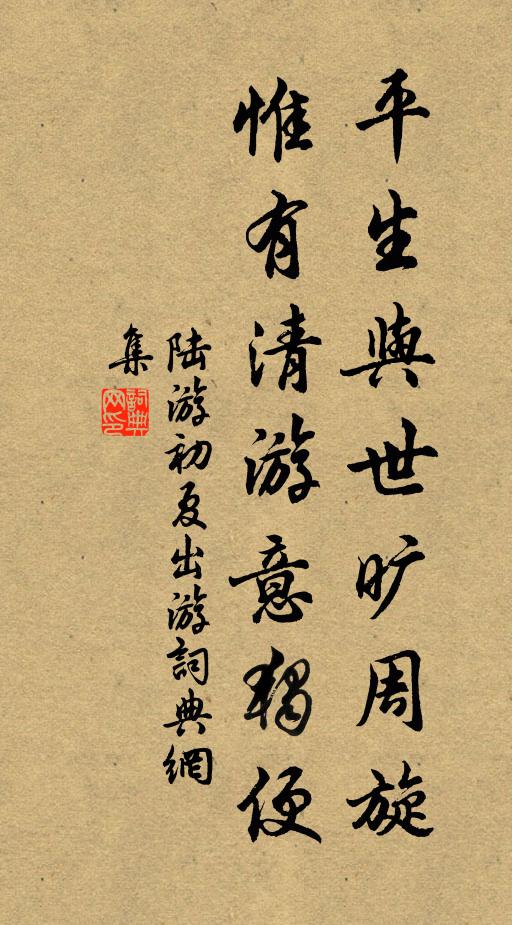 平生與世旷周旋
惟有清游意独便
陆游初夏出游詞典網
集
詞典网印